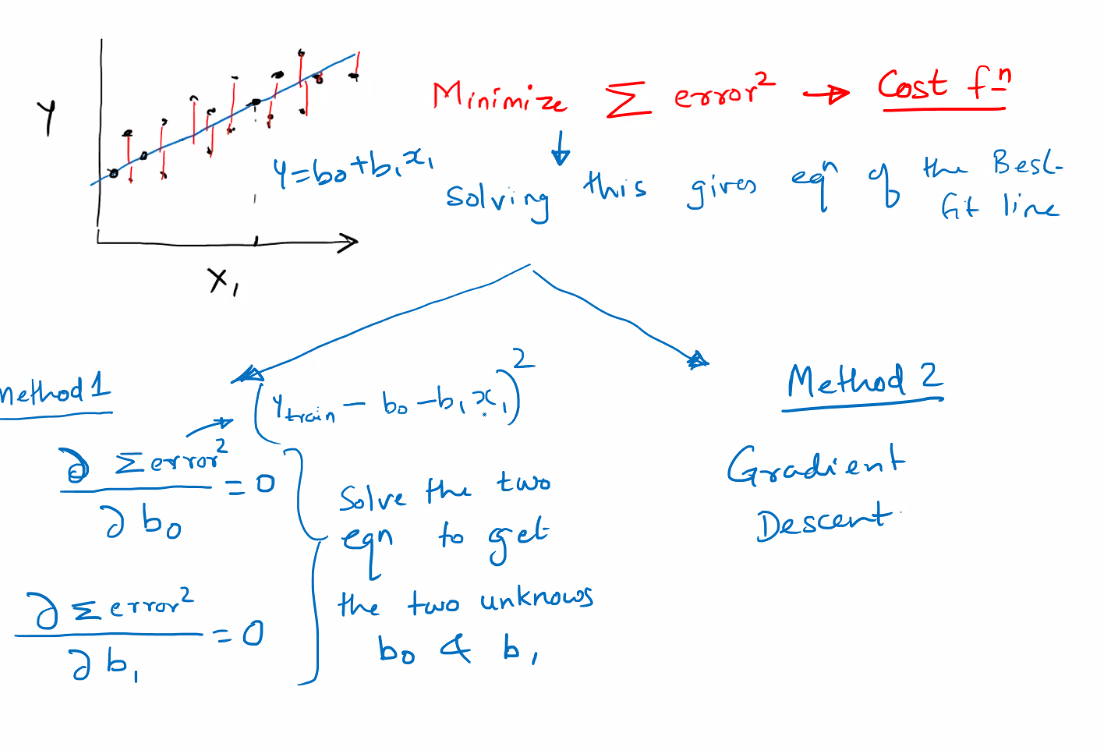 Y
Y=b₀+b₁x₁
X₁
Minimize Σ error² → Cost fⁿ
↓
Solving this gives eqⁿ of the Best-
fit line
Method 1
(Ytrain – b₀ – b₁x₁)²
∂ Σ error² / ∂ b₀ = 0
∂ Σ error² / ∂ b₁ = 0
Solve the two
eqn to get
the two unknows
b₀ & b₁
Method 2
Gradient
Descent